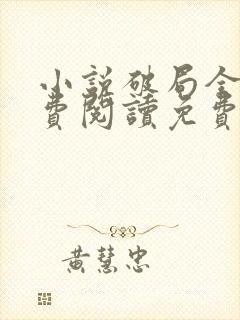 小説破局全
費閱讀免費
黃慧忠